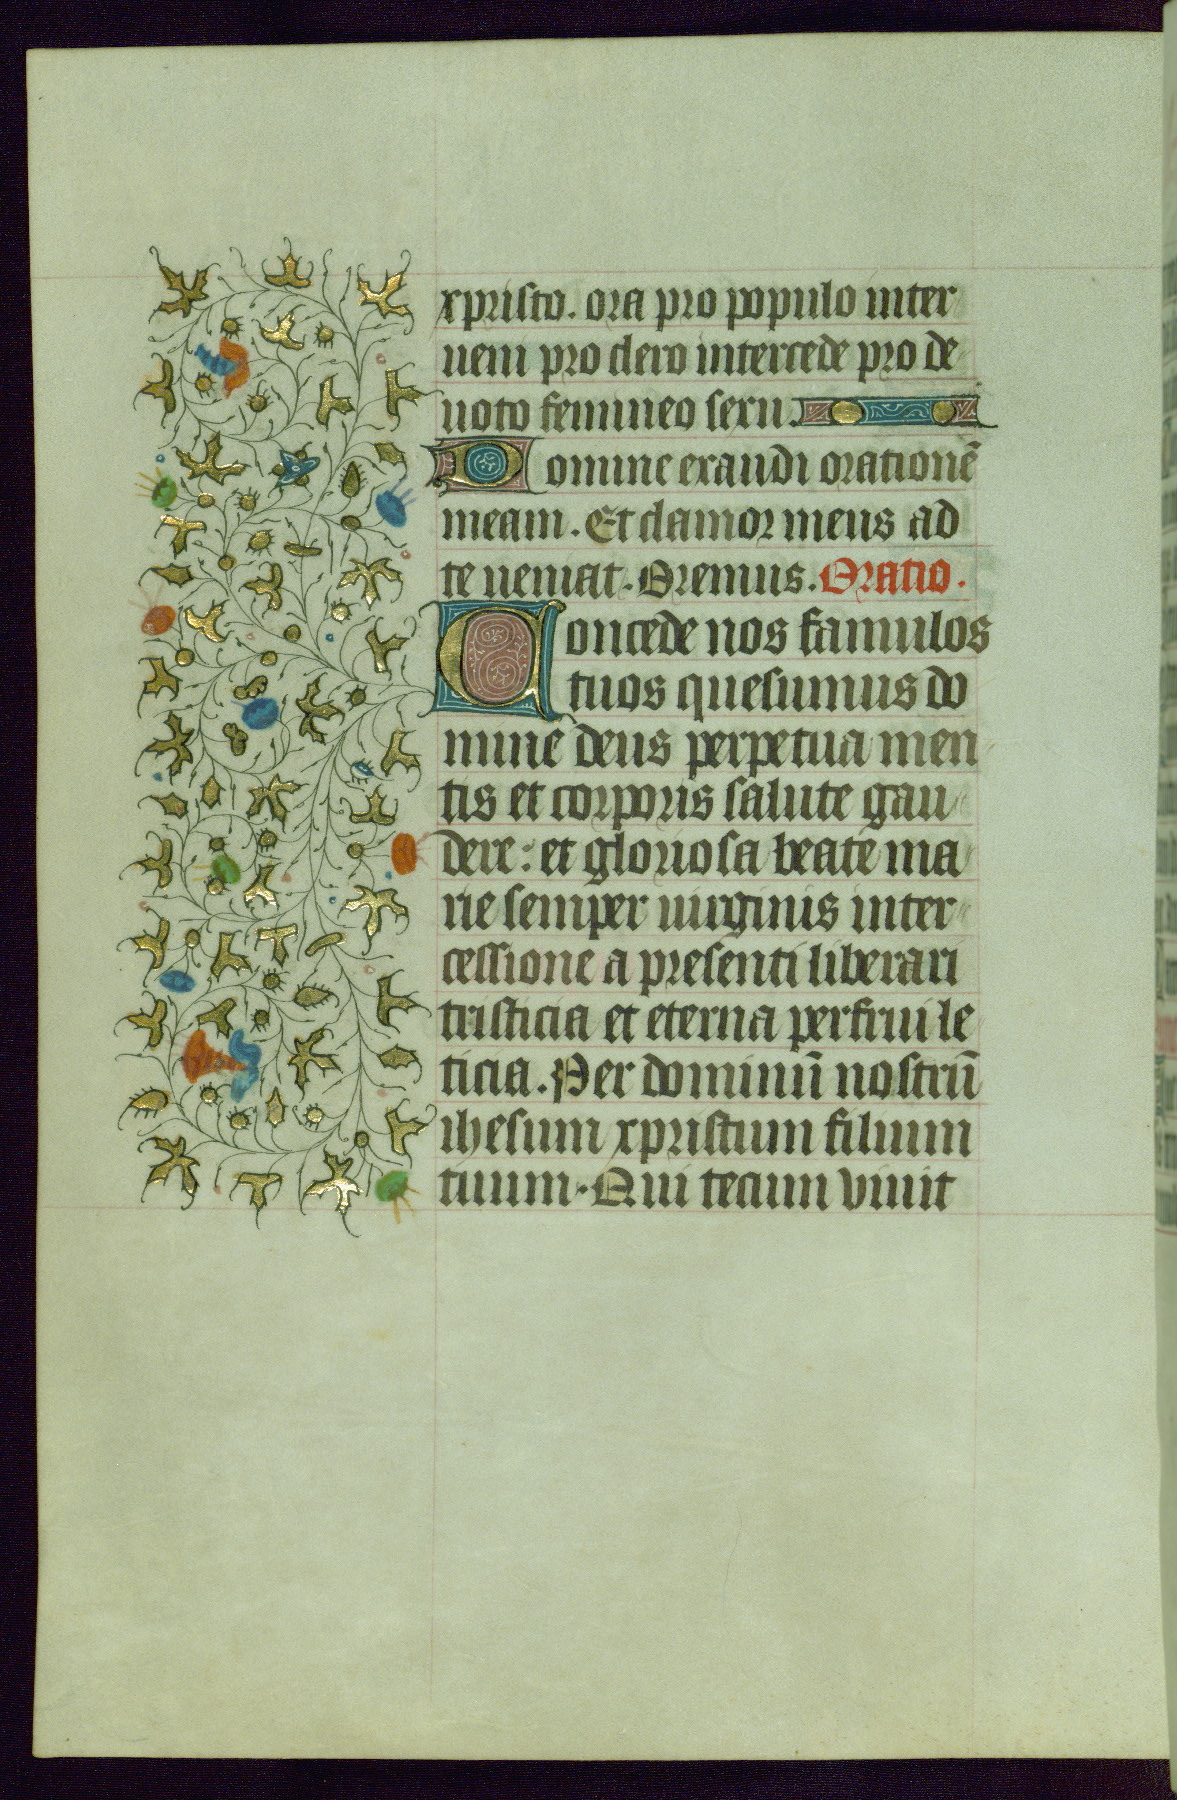 xpristo. ora pro populo inter
ueni pro clero intercede pro de
uoto femineo sexu.
Domine exaudi orationē
meam. Et clamor meus ad
te ueniat. Oremus. Oratio.
Concede nos famulos
tuos quesumus do
mine deus perpetua men
tis et corporis salute gau
dere: et gloriosa beate ma
rie semper uirginis inter
cessione a presenti liberari
tristicia et eterna perfrui le
ticia. Per dominū nostrū
ihesum xpristum filium
tuum. Qui tecum viuit